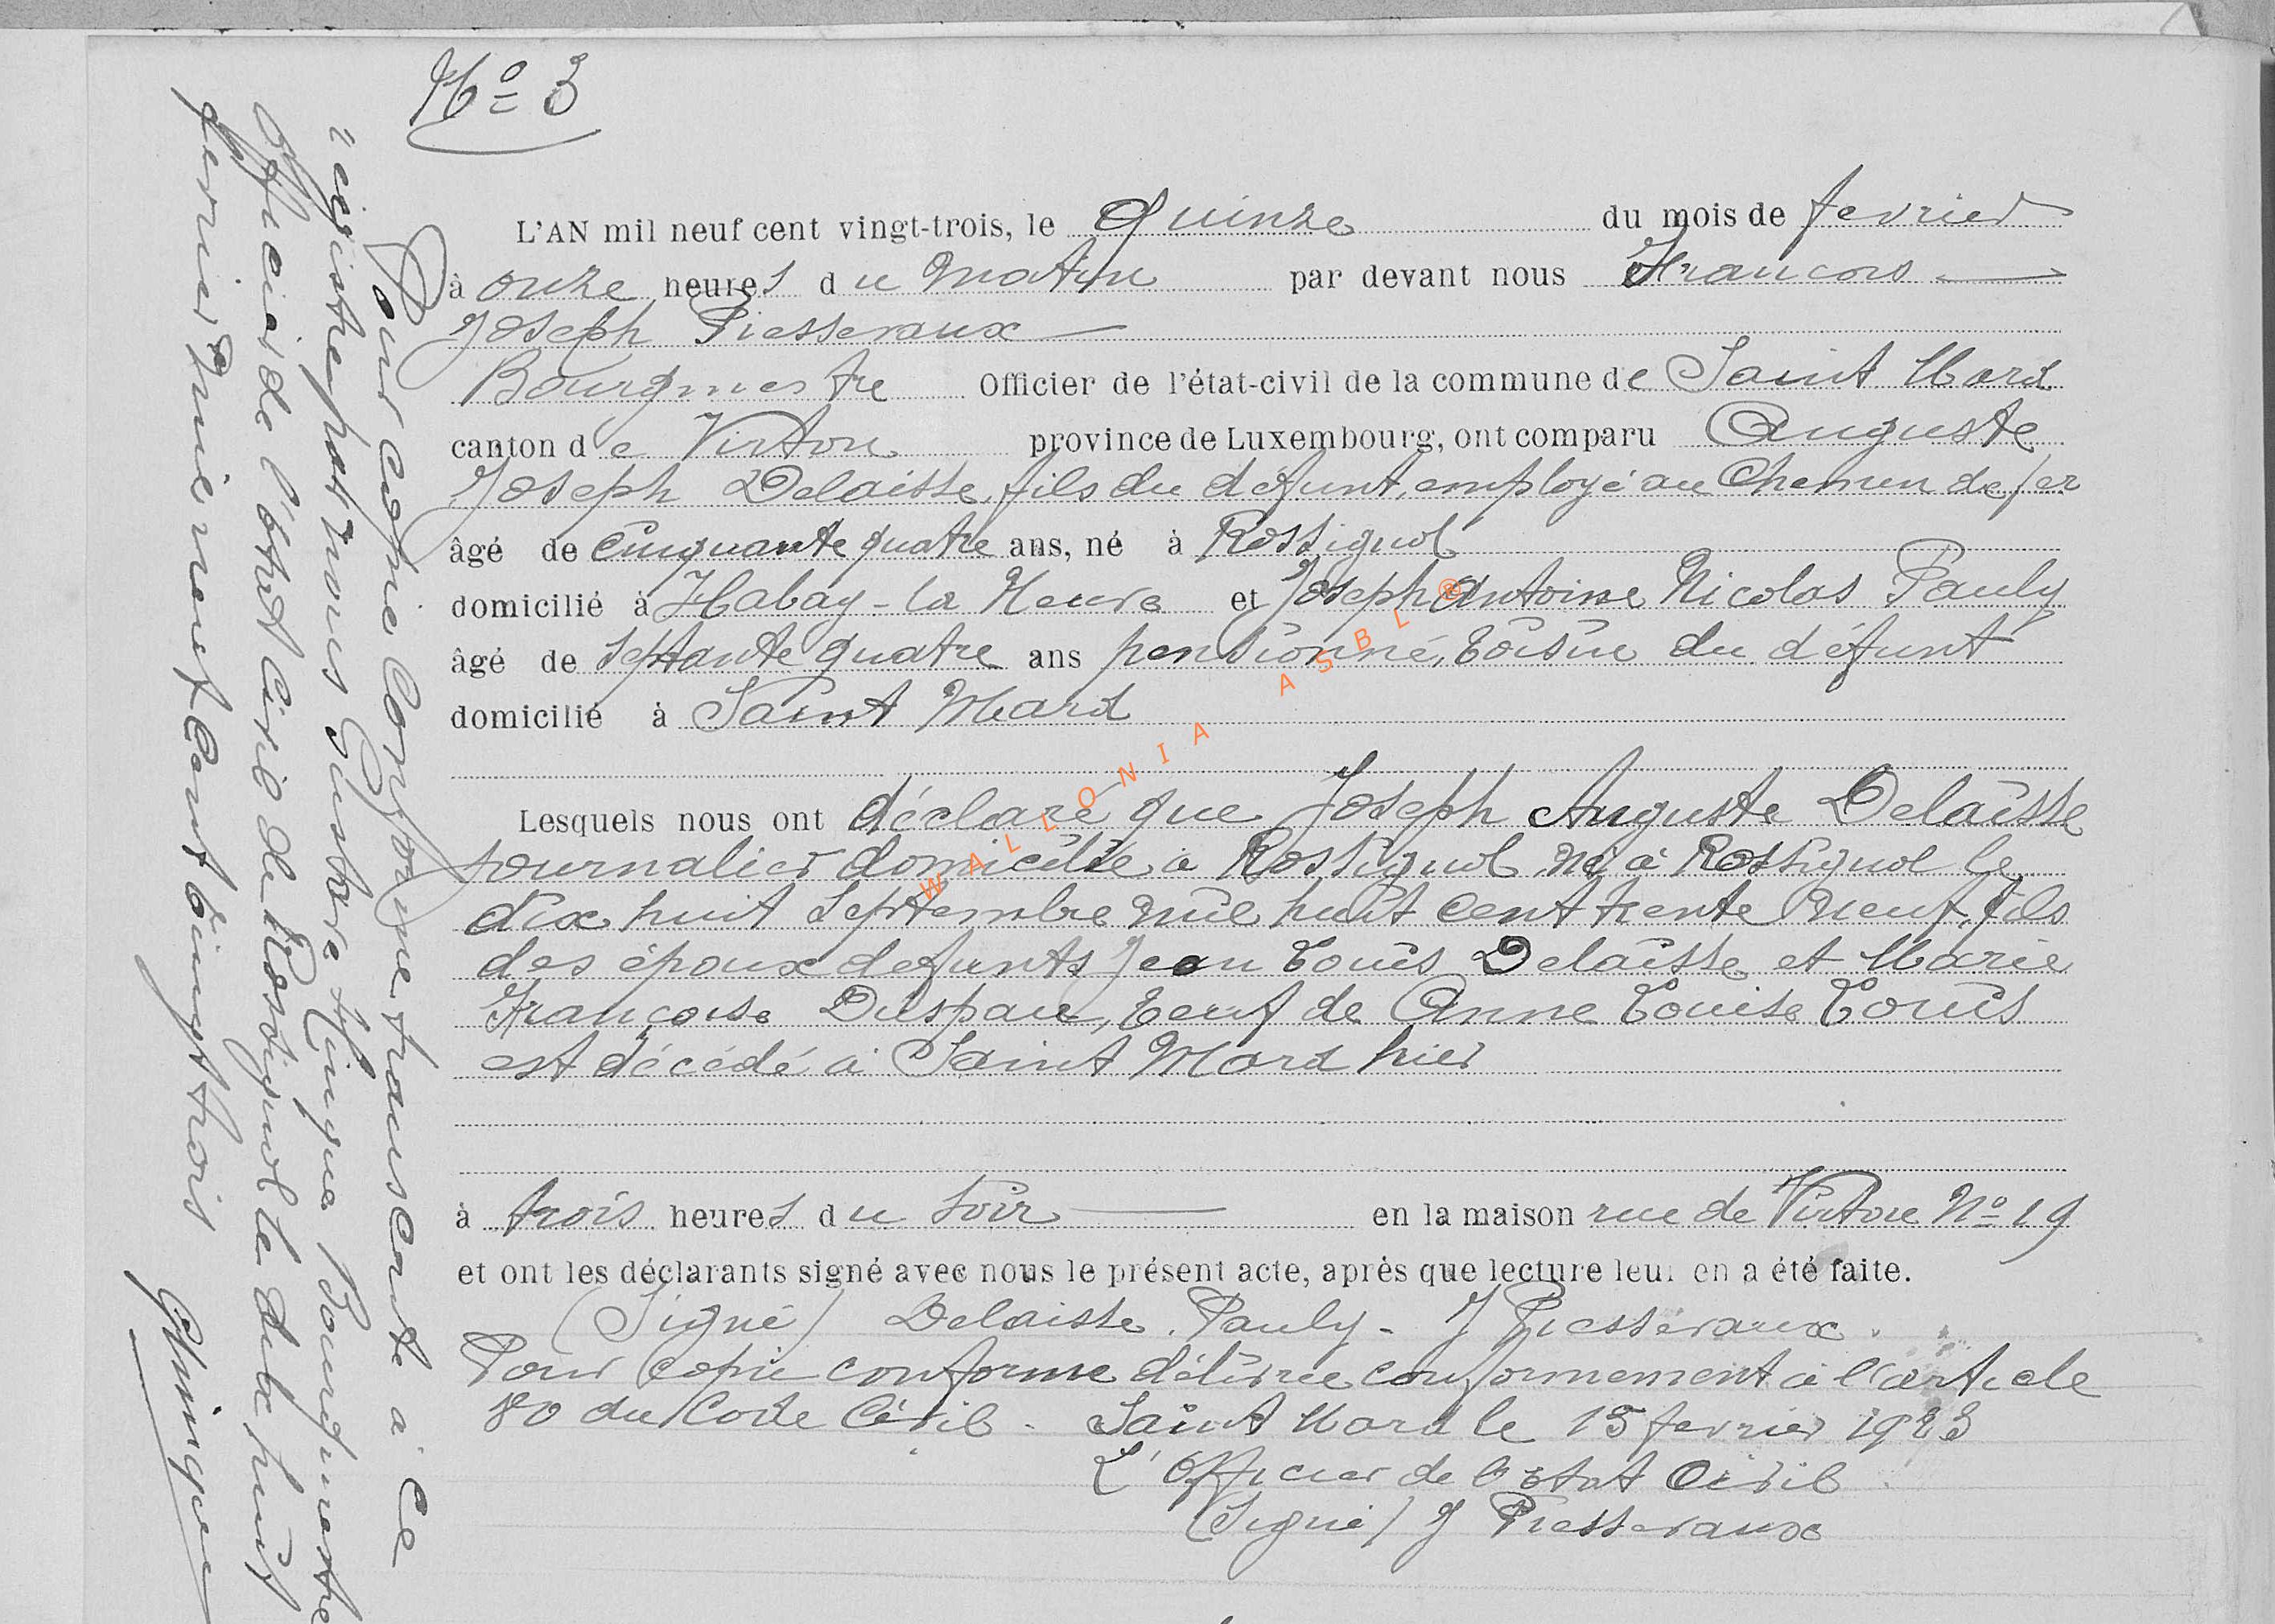 No 3
L'AN mil neuf cent vingt-trois, le Quinze du mois de fevrier
à onze heures du Matin par devant nous Francois
Joseph Piesseraux
Bourgmestre Officier de l'état-civil de la commune de Saint Mard
canton de Virton province de Luxembourg, ont comparu Auguste
Joseph Delaisse, fils du défunt, employé au Chemin de fer
âgé de cinquante quatre ans, né à Rossignol
domicilié à Habay-la Neuve et Joseph Antoine Nicolas Pauly
âgé de septante quatre ans pensionné, voisin du défunt
domicilié à Saint Mard
Lesquels nous ont déclaré que Joseph Auguste Delaisse
journalier domicilié à Rossignol né à Rossignol le
dix huit Septembre mil huit cent trente neuf, fils
des époux defunts Jean Louis Delaisse et Marie
Françoise Duspaue, veuf de Anne Louise Louis
est décédé à Saint Mard hier
à trois heures du soir en la maison rue de Virton No 19
et ont les déclarants signé avec nous le présent acte, après que lecture leur en a été faite.
(Signé) Delaisse. Pauly - J Piesseraux.
Pour copie conforme délivrée conformement à l'article
80 du Code Civil. Saint Mard le 15 fevrier 1923
L'Officier de l'Etat Civil
(Signé) J Piesseraux
Pour Copie Conforme transcrite à ce
registre par nous Gustave Hinque Bourgmestre
Officier de l'état Civil de Rossignol le dix huit
fevrier mil neuf cent vingt trois
GHinque
WALLONIA ASBL ®